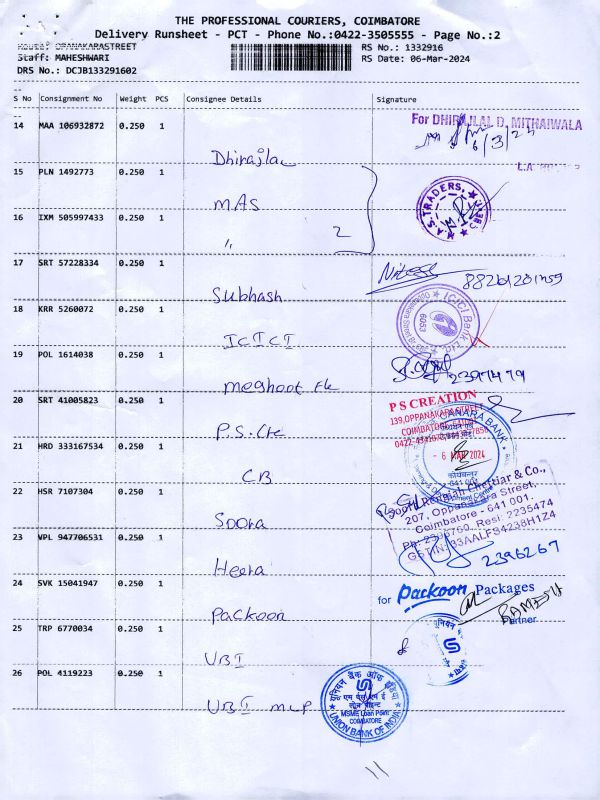 THE PROFESSIONAL COURIERS, COIMBATORE
Delivery Runsheet - PCT - Phone No.:0422-3505555 - Page No.:2
House: OPANAKARASTREET
RS No.: 1332916
Staff: MAHESHWARI
RS Date: 06-Mar-2024
DRS No.: DCJB133291602
S No Consignment No Weight PCS Consignee Details Signature
14 MAA 106932872 0.250 1
For DHIRAJLAL D. MITHAIWALA
6/3/24
Dhirajlal
15 PLN 1492773 0.250 1
MAS
A.S. TRADERS,
16 IXM 505997433 0.250 1
〃 2
17 SRT 57228334 0.250 1
Nitesh
Subhash
18 KRR 5260072 0.250 1
ICICI Bank Ltd.
6053
ICICI
19 POL 1614038 0.250 1
2397479
Meghoot
20 SRT 41005823 0.250 1
P S CREATION
139,OPPANAKARA STREET
COIMBATORE
P.S. Cre
21 HRD 333167534 0.250 1
CANARA BANK
- 6 MAR 2024
कोयम्बतूर
641 001
CB
22 HSR 7107304 0.250 1
Chettiar & Co.,
207, Oppanakara Street,
Coimbatore - 641 001.
Resi: 2235474
GSTIN: 33AALFS4238H1Z4
Soora
23 VPL 947706531 0.250 1
2396267
Heera
24 SVK 15041947 0.250 1
for Packoon Packages
RAMESH
Partner
Packoon
25 TRP 6770034 0.250 1
यूनियन
UBI
26 POL 4119223 0.250 1
यूनियन बैंक ऑफ इंडिया
एम एस एम ई
लोन पॉइन्ट
MSME Loan Point
COIMBATORE
UNION BANK OF INDIA
UBI MLP
11